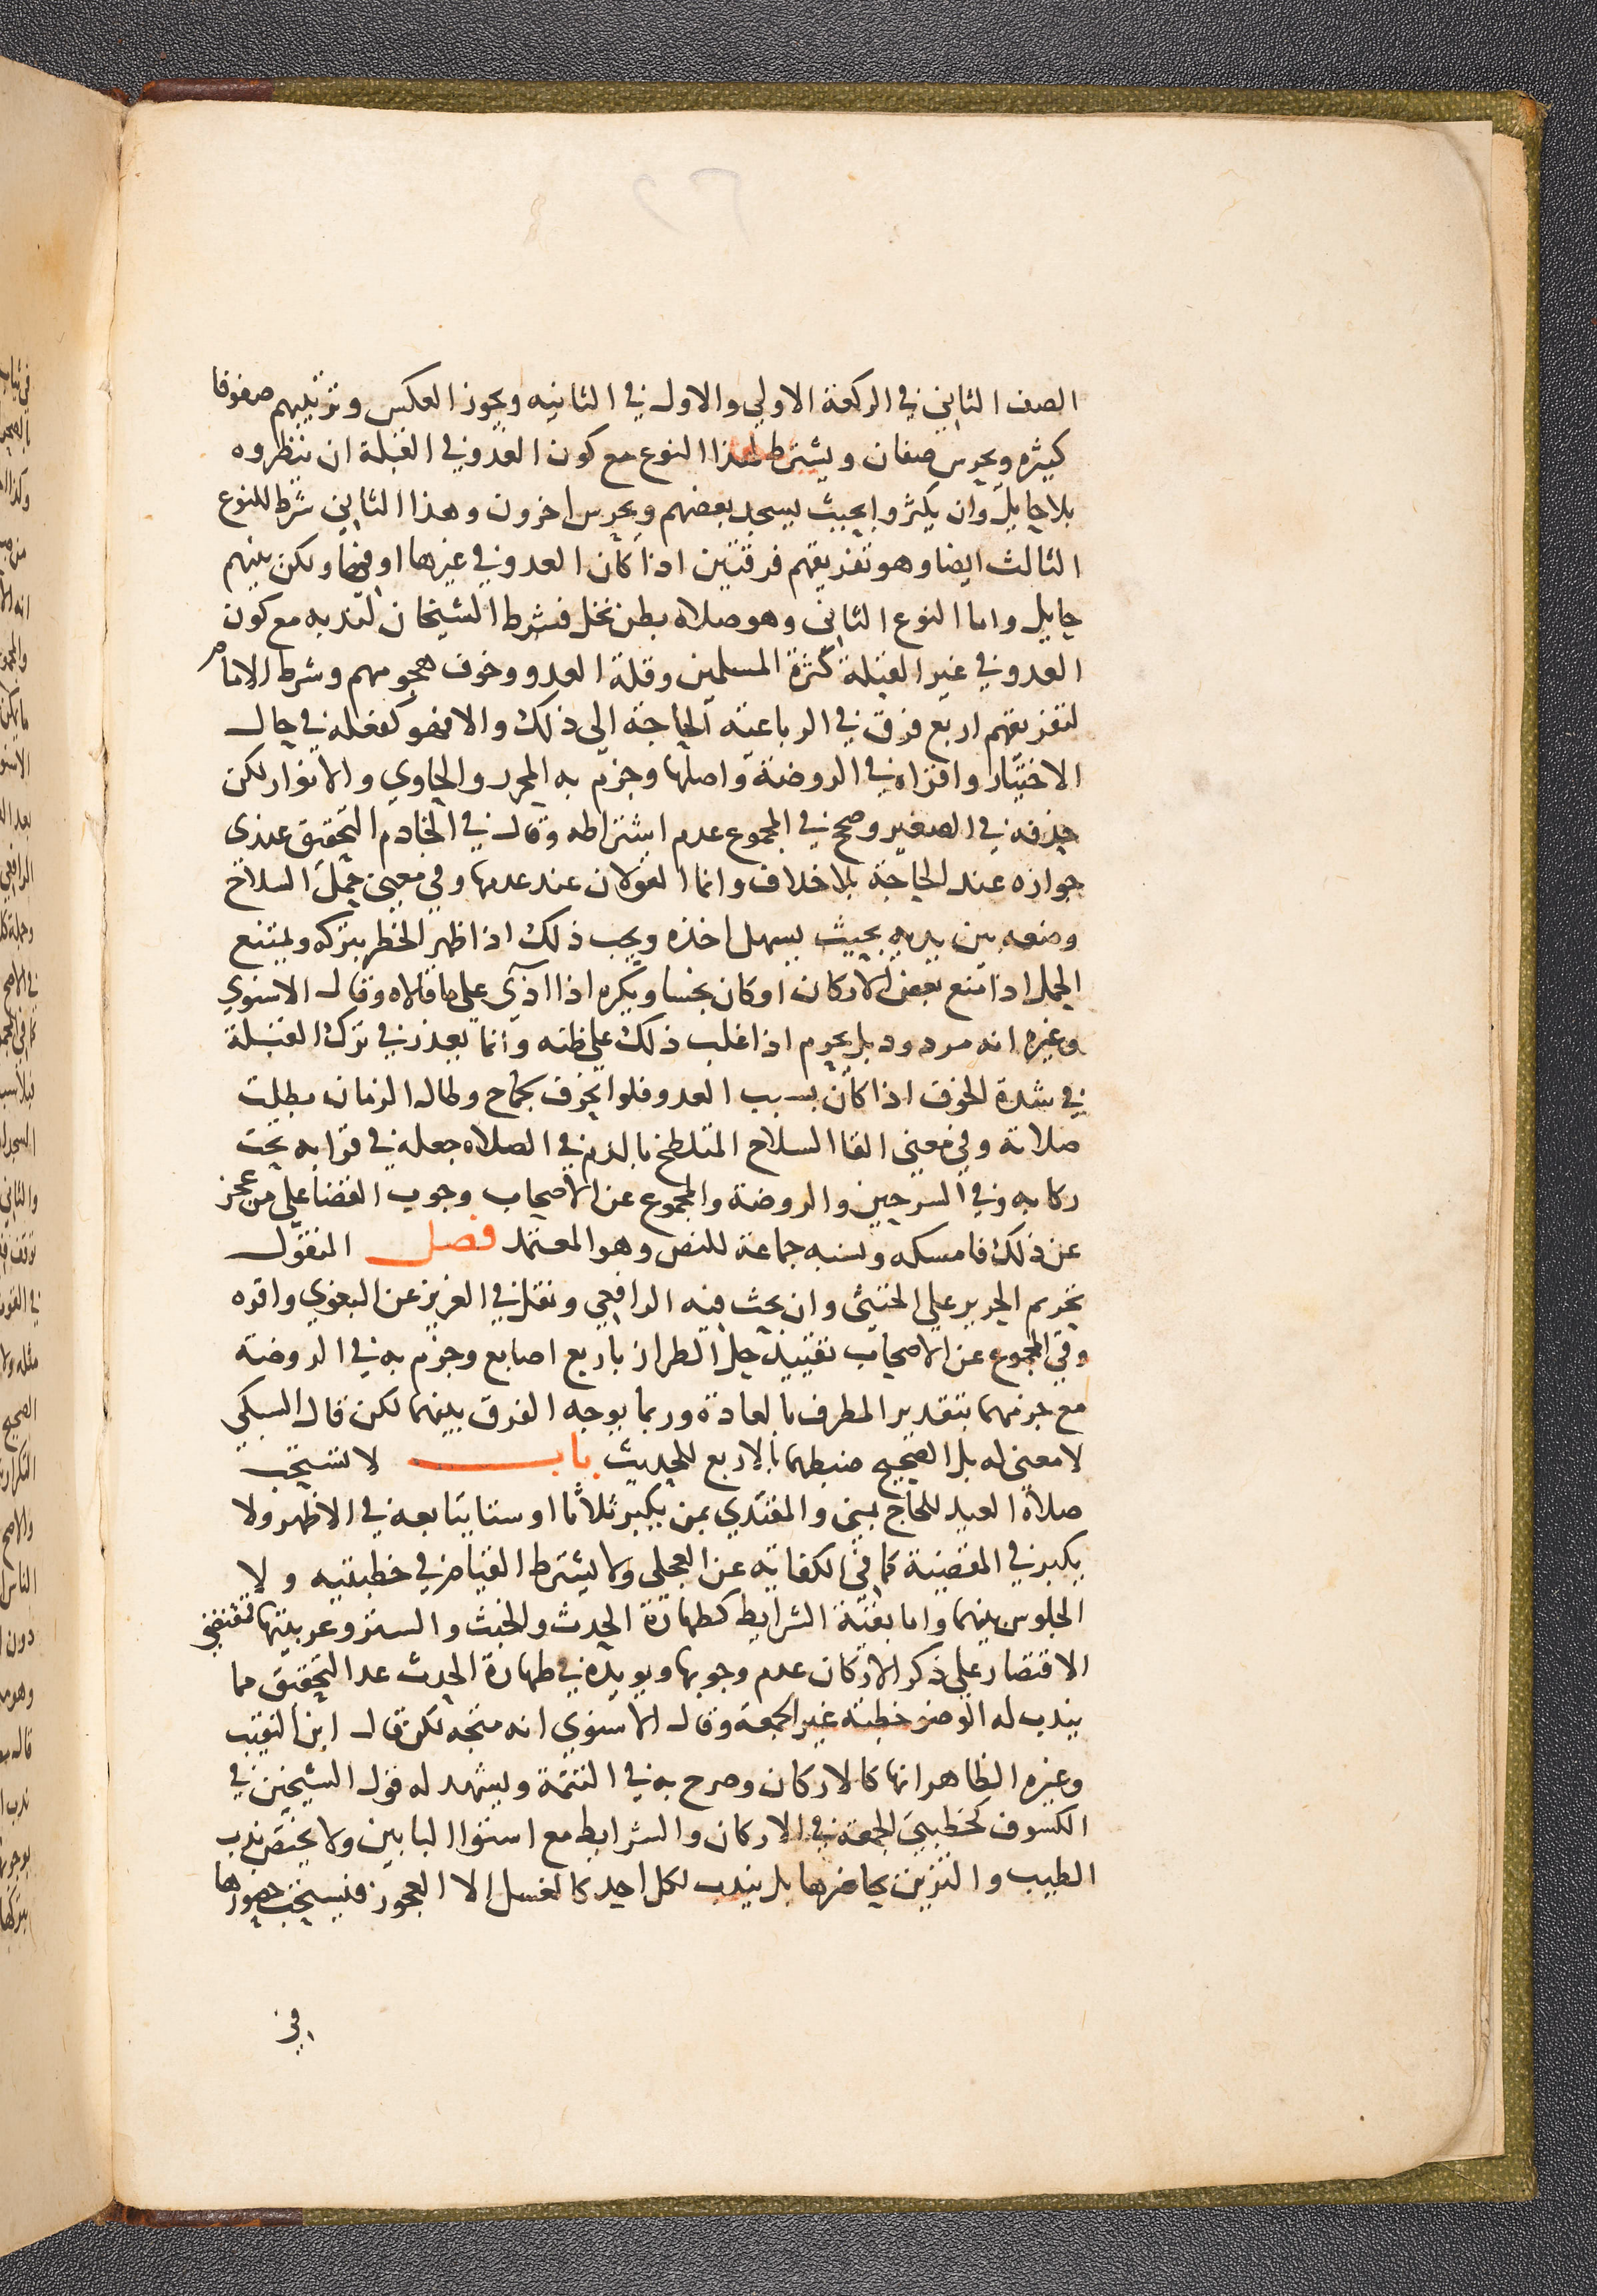 الصف الثاني في الركعة الاولي والاول في الثانيه ويجوز العكس وترتيبهم صفوفا
كثيره ويحرس صفان ويشترط لهذا النوع مع كون العدو في القبلة ان ينظروه
بلا حايل وان يكثروا بحيث يسجد بعضهم ويحرس اخرون وهذا الثاني شرط للنوع
الثالث ايضا وهو تفريقهم فرقتين اذا كان العدو في غيرها او فيها ولكن بينهم
حايل واما النوع الثاني وهو صلاه بطن نخل فشرط الشيخان لندبه مع كون
العدو في غير القبلة كثرة المسلمين وقلة العدو وخوف هجومهم وشرط الامام
لتفريقهم اربع فرق في الرباعية الحاجة الي ذلك والا فهو كفعله في حال
الاختيار واقراه في الروضة واصلها وجزم به المحرر والحاوي والانوار لكن
حذفه في الصغير وصحح في المجموع عدم اشتراطه وقال في الخادم التحقيق عندي
جوازه عند الحاجة بلا خلاف وانما القولان عند عدمها وفي معني حمل السلاح
وضعه بين يديه بحيث يسهل اخذه ويجب ذلك اذا ظهر الخطر بتركه ويمتنع
الحمل اذا منع بعض الاركان او كان نجسا ويكره اذا اذي علي ما قالاه وقال الاسنوي
وغيره انه مردود بل يحرم اذا غلب ذلك علي ظنه وانما يعذر في ترك القبلة
في شدة الخوف اذا كان بسبب العدو فلو انحرف بجماح وطال الزمان بطلت
صلاته وفي معني القا السلاح المتلطخ بالدم في الصلاه جعله في قرابه تحت
ركابه وفي الشرحين والروضة والمجموع عن الاصحاب وجوب القضا علي من عجز
عن ذلك فامسكه ونسبه جماعة للنص وهو المعتمد فصل المنقول
تحريم الحرير علي الخنثي وان بحث فيه الرافعي ونقل في العزيز عن البغوي واقره
وفي المجموع عن الاصحاب تقييد حل الطراز باربع اصابع وجزم به في الروضة
مع جزمهما بتقدير المطرف بالعادة وربما يوجه الفرق بينهما لكن قال السبكي
لا معني له بل الصحيح ضبطهما بالاربع للحديث باب لا تستحب
صلاة العيد للحاج بمني والمقتدي بمن يكبر ثلاثا او ستا يتابعه في الاظهر ولا
يكبر في المقضية كما في الكفاية عن العجلي ولا يشترط القيام في خطبتيه ولا
الجلوس بينهما واما بقية الشرايط كطهارة الحدث والخبث والستر وعربيتها فقتضي
الاقتصار علي ذكر الاركان عدم وجوبها ويويده في طهارة الحدث عد التحقيق مما
يندب له الوضو خطبة غير الجمعة وقال الاسنوي انه متجه لكن قال ابن النقيب
وغيره الظاهر انها كالاركان وصرح به في التتمة ويشهد له قول الشيخين في
الكسوف كخطبتي الجمعة في الاركان والشرايط مع استوا البابين ولا يختص ندب
الطيب والتزين بحاضرها بل يندب لكل احد كالغسل الا العجوز فيستحب حضورها
في